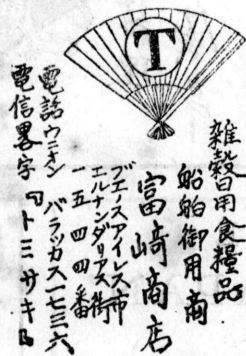 T
雑穀日用食糧品
船舶御用商
富崎商店
ブエノスアイレス市
エルナンダリアス街
一五四四番
電話ウニオン バラッカス一七三六
電信畧字 『トミサキ』